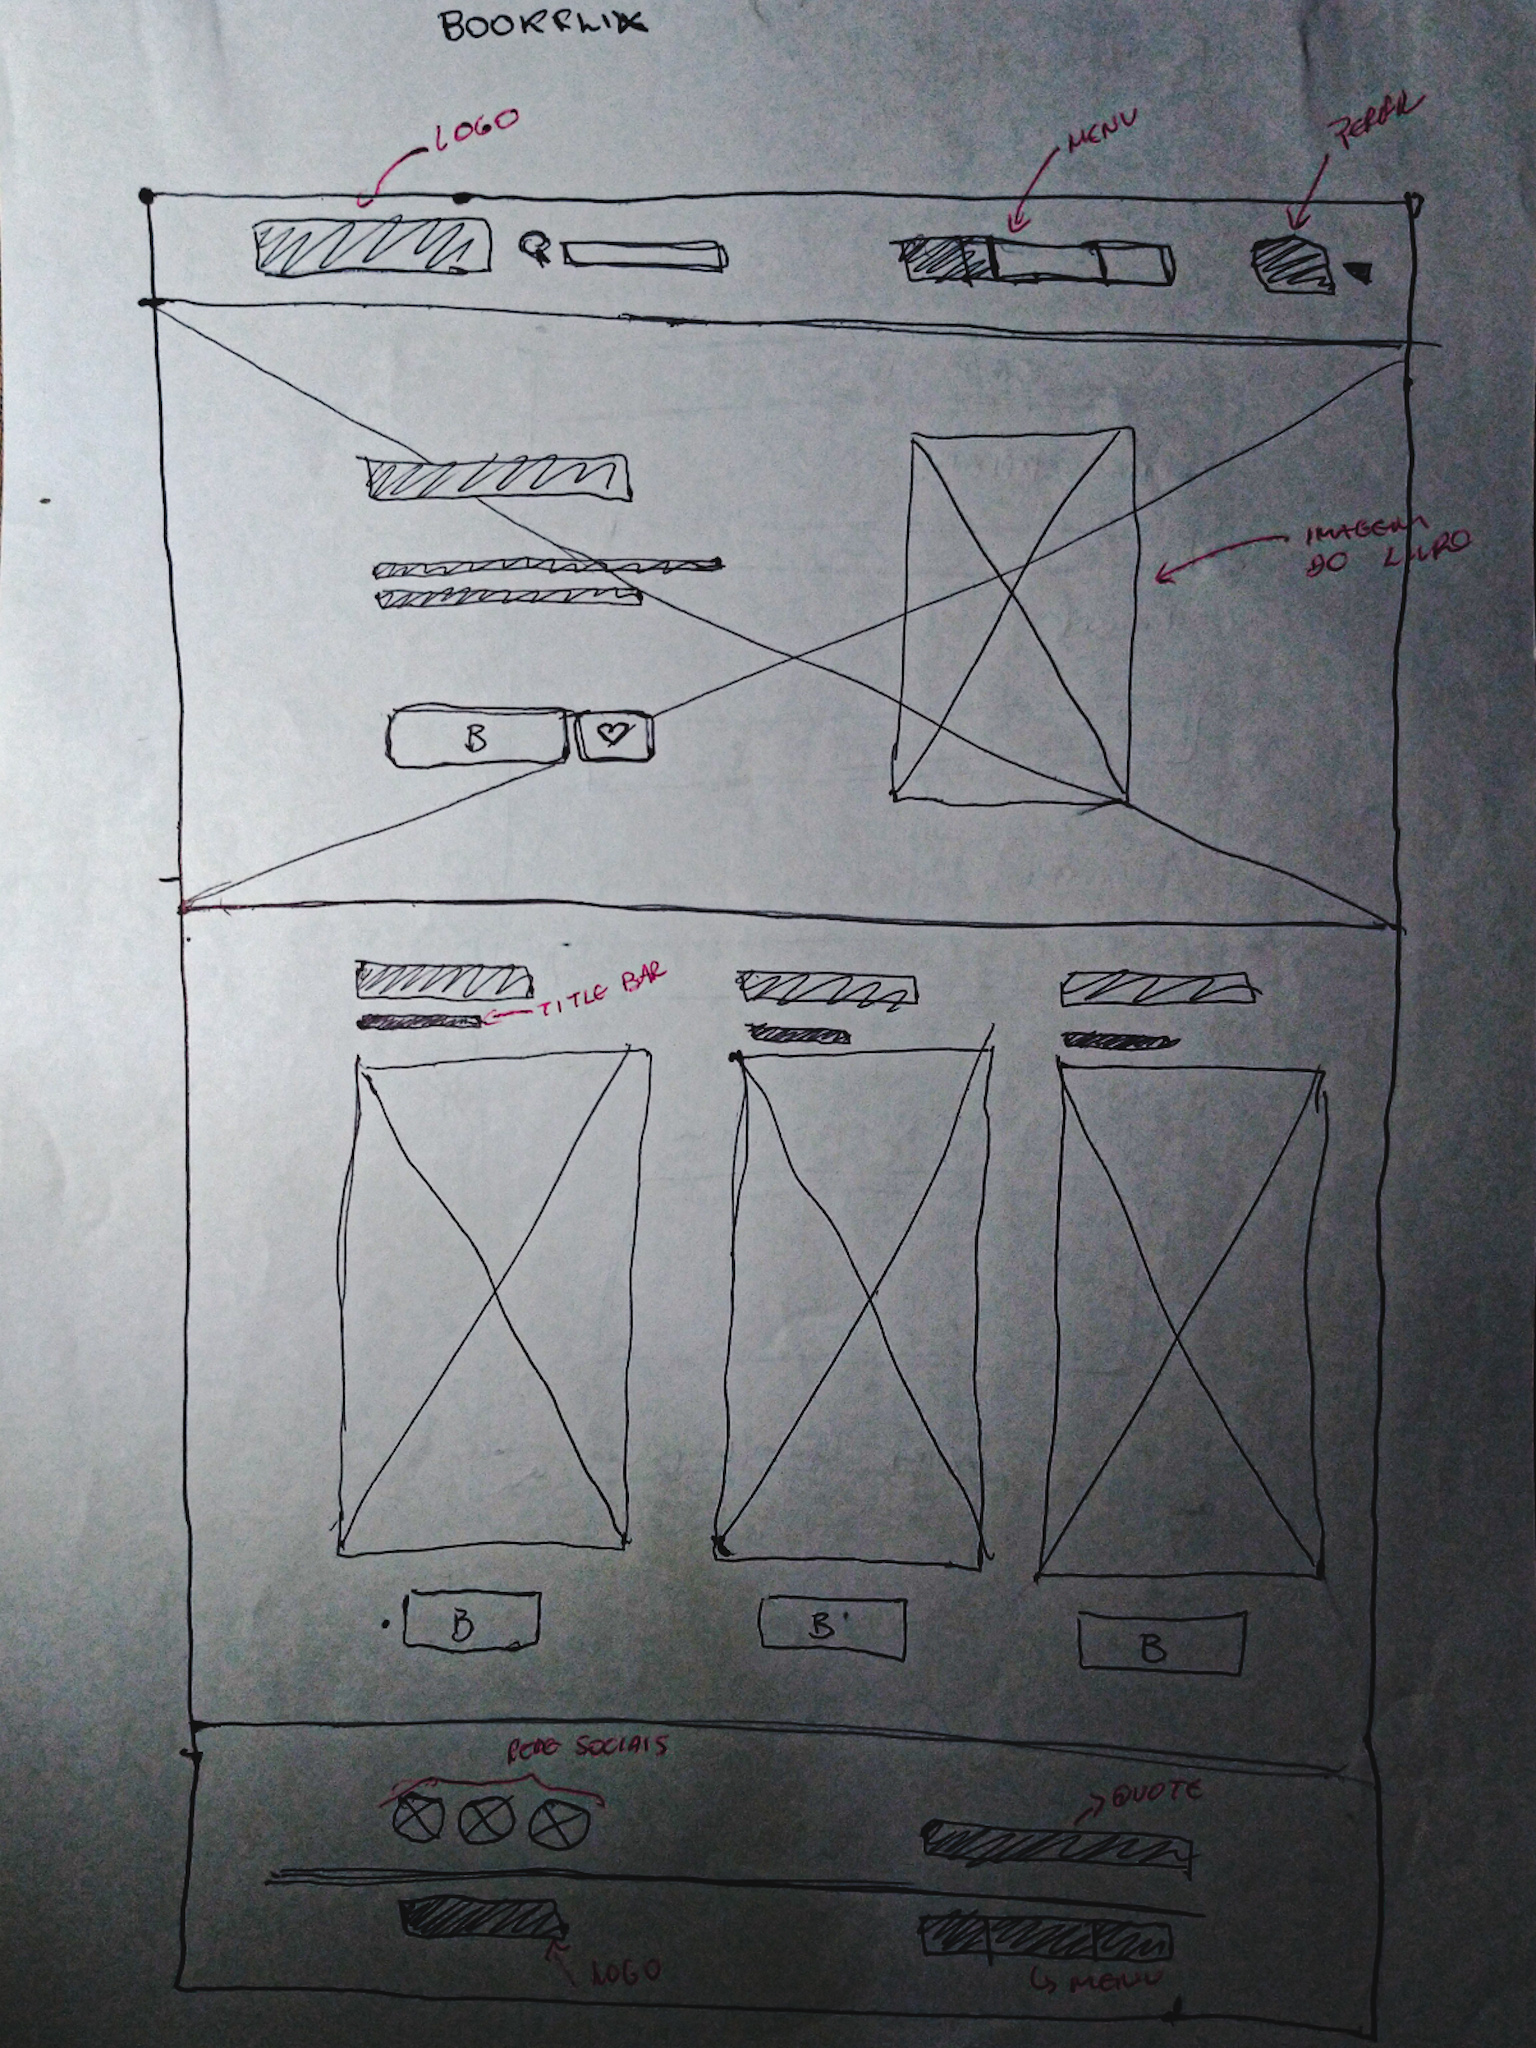 BOOKFLIX
LOGO
MENU
PERFIL
IMAGEM
DO LIVRO
B
TITLE BAR
B
B
B
REDE SOCIAIS
QUOTE
LOGO
MENU